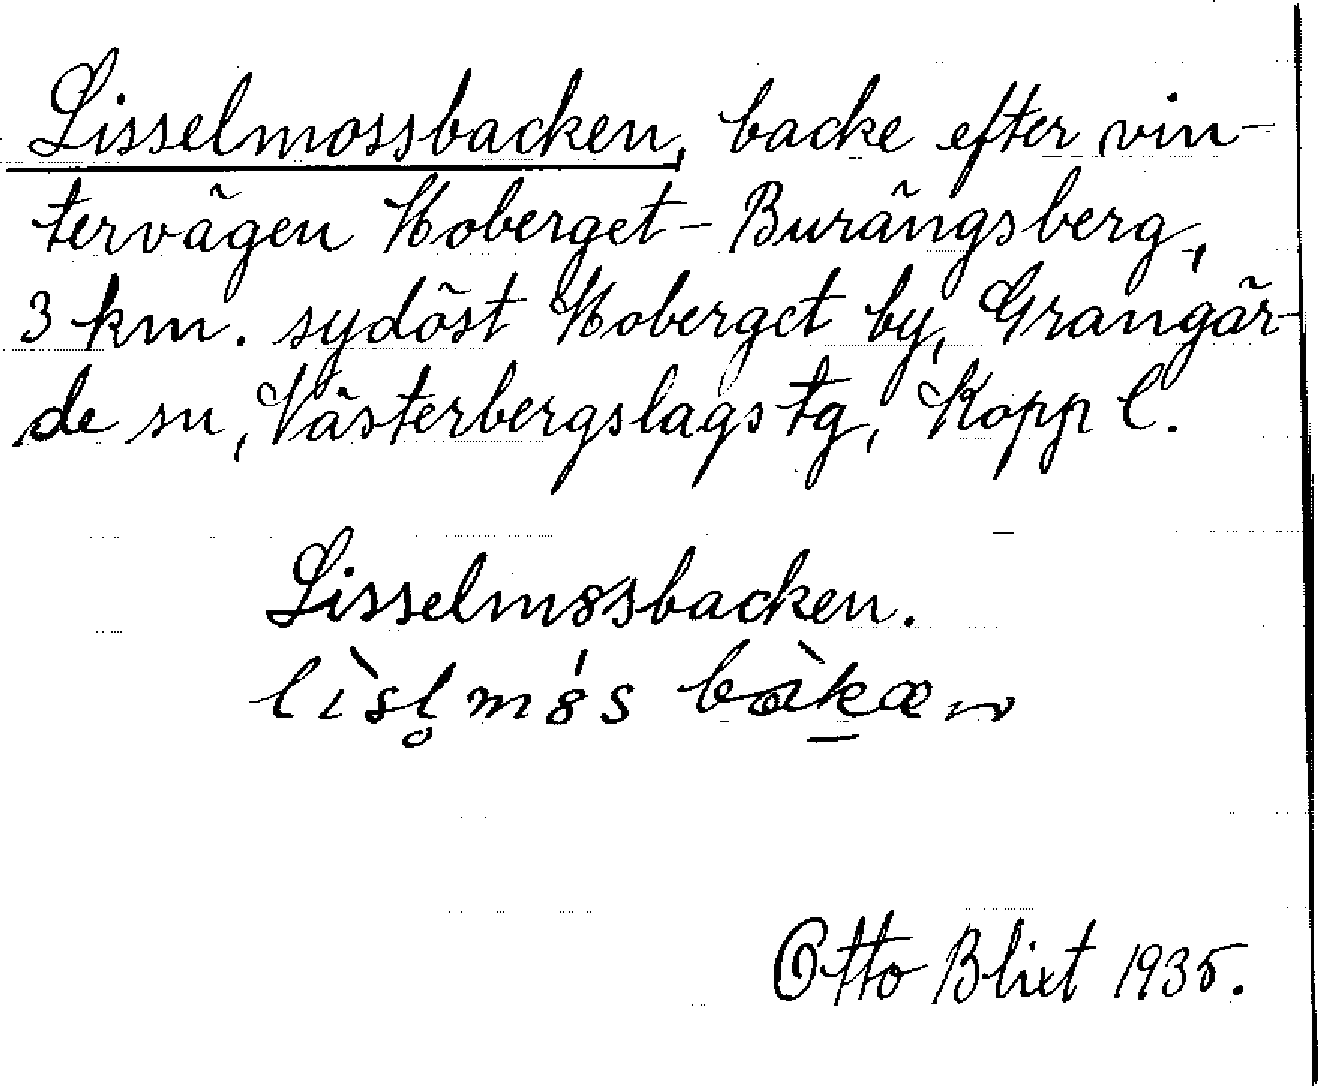 Lisselmossbacken, backe efter vin-
tervägen Hoberget - Burängsberg,
3 km. sydöst Hoberget by, Grangär-
de sn, Västerbergslags tg, Kopp l.
Lisselmossbacken.
lìsl̥ mó̤s bàkæn
Otto Blixt 1935.